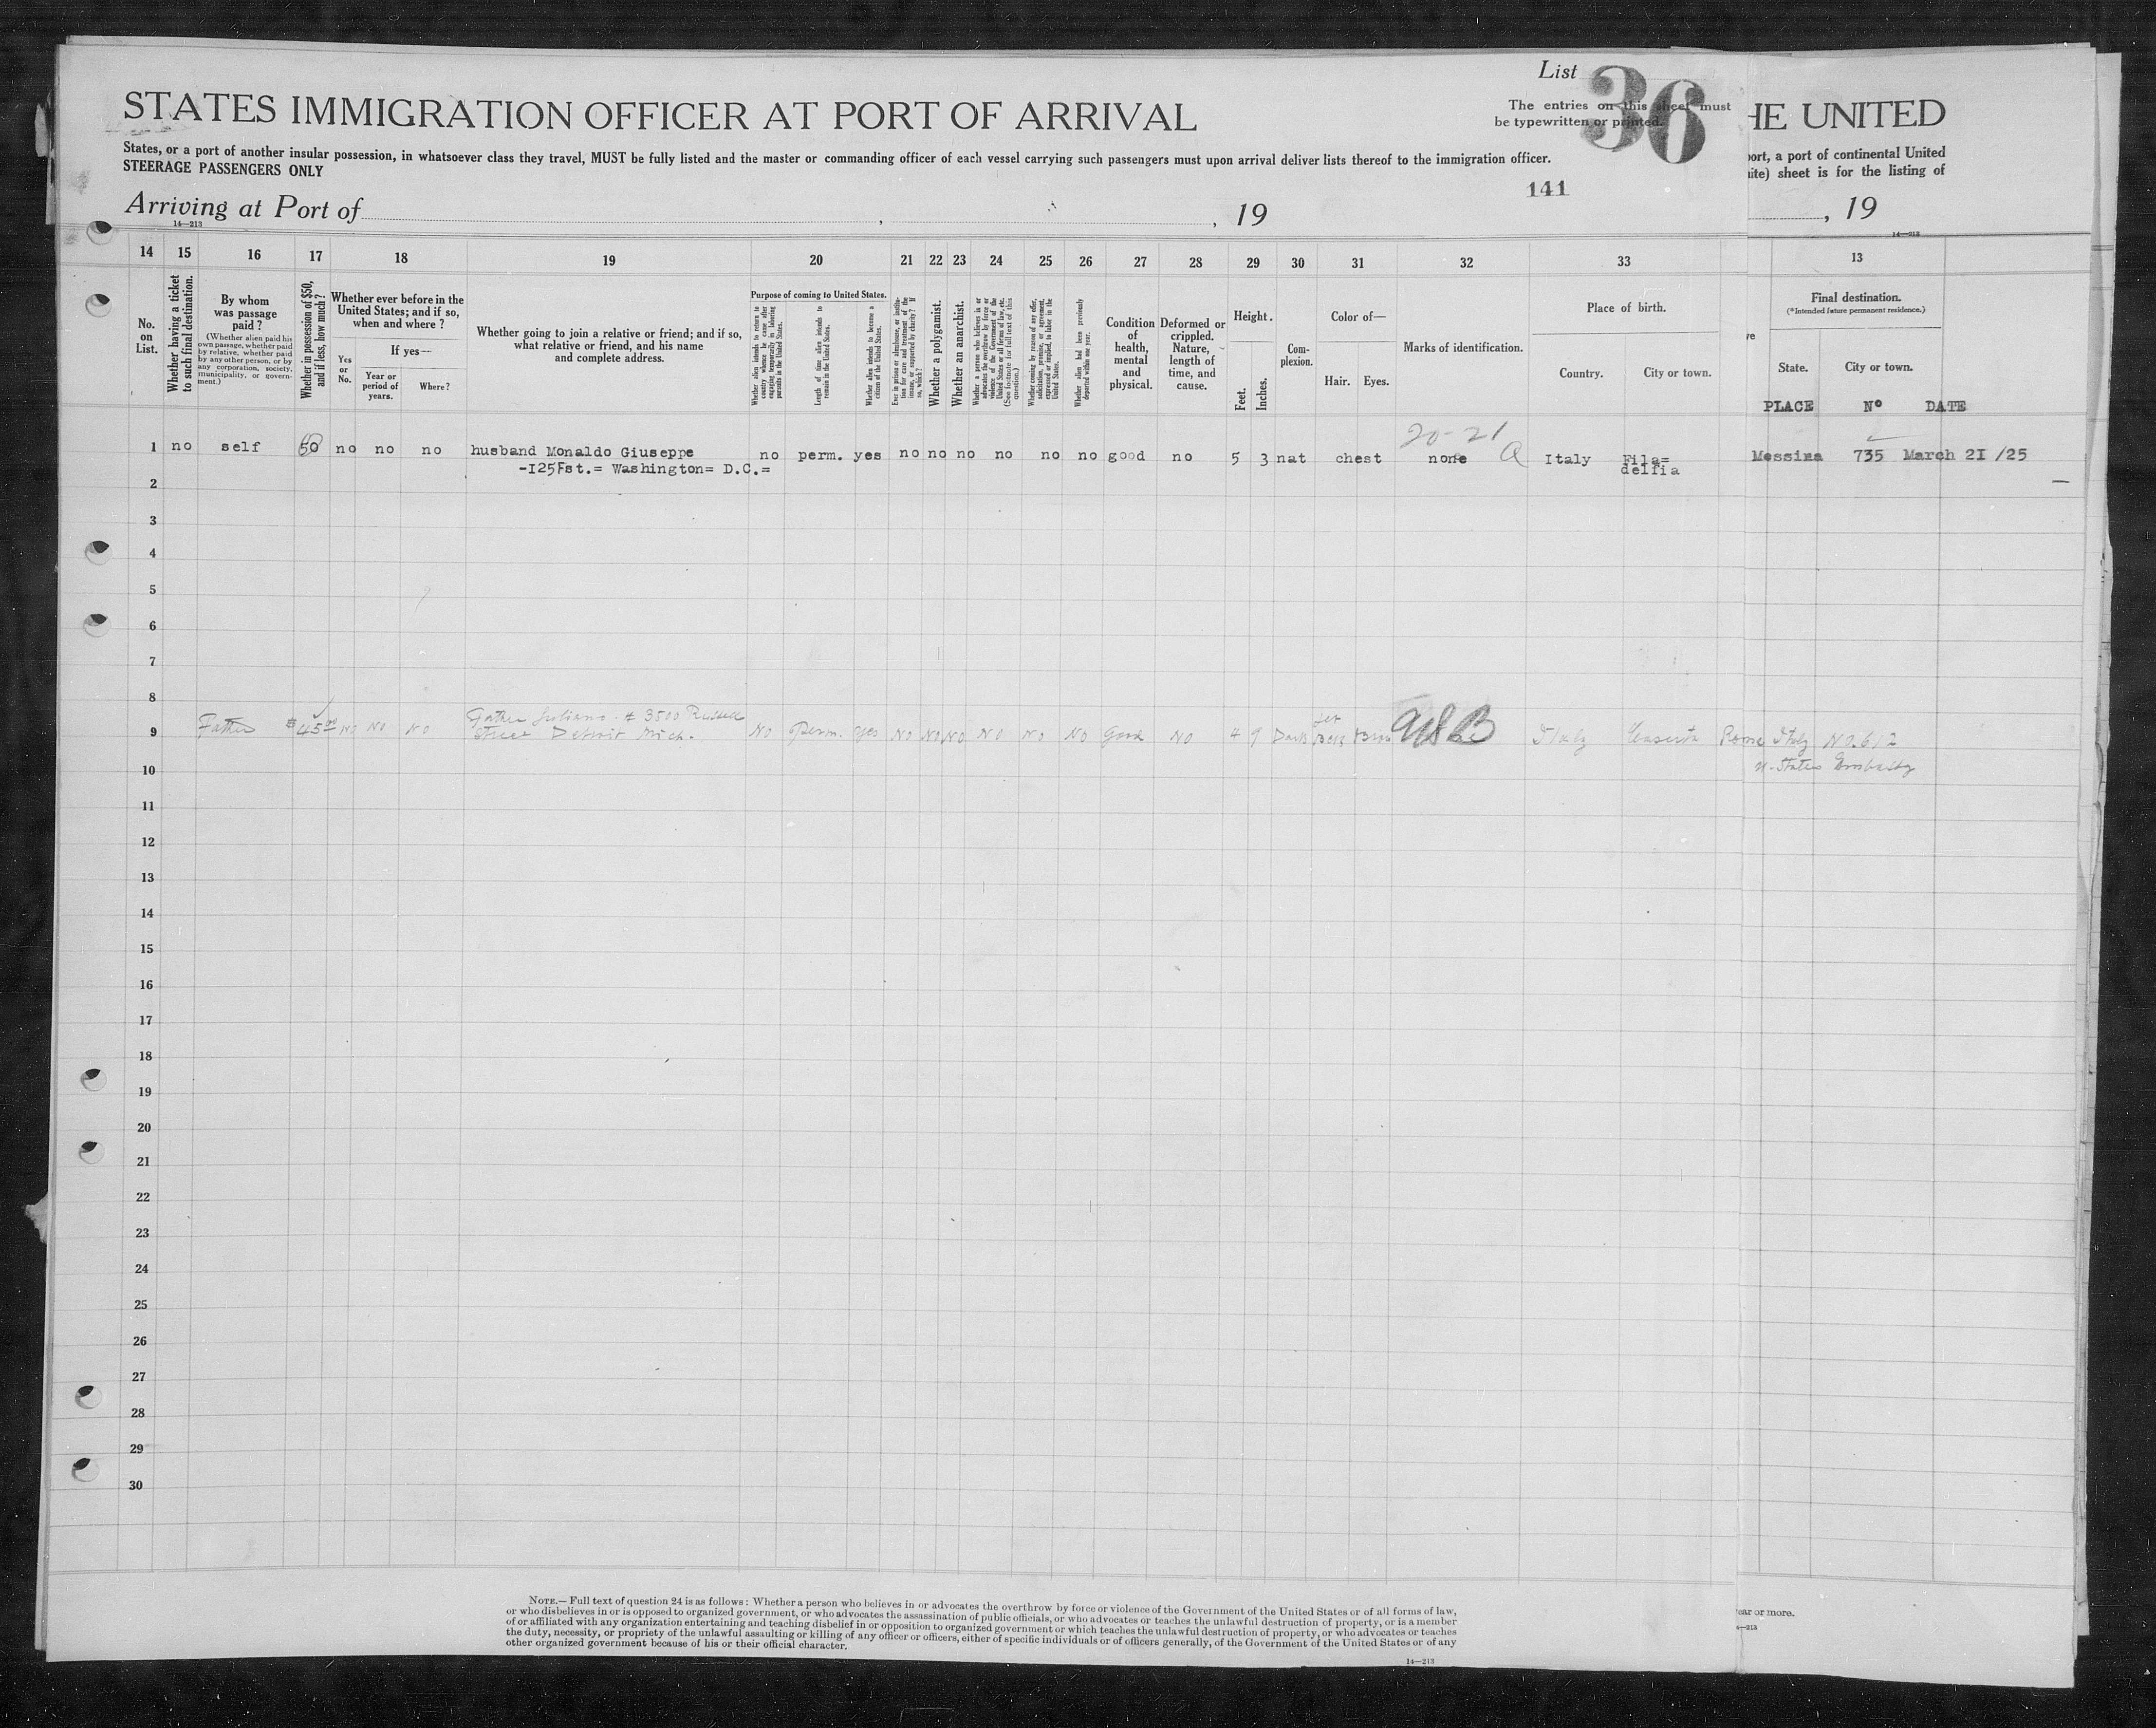 List 36
STATES IMMIGRATION OFFICER AT PORT OF ARRIVAL
The entries on this sheet must
be typewritten or printed.
HE UNITED
States, or a port of another insular possession, in whatsoever class they travel, MUST be fully listed and the master or commanding officer of each vessel carrying such passengers must upon arrival deliver lists thereof to the immigration officer.
STEERAGE PASSENGERS ONLY
ort, a port of continental United
ite) sheet is for the listing of
141
Arriving at Port of , , 19
, 19
14—213
14—213
14 15 16 17 18 19 20 21 22 23 24 25 26 27 28 29 30 31 32 33 13
No. on List.
Whether having a ticket to such final destination.
By whom was passage paid?
(Whether alien paid his own passage, whether paid by relative, whether paid by any other person, or by any corporation, society, municipality, or government.)
Whether in possession of $50, and if less, how much?
Whether ever before in the United States; and if so, when and where?
Yes or No.
If yes—
Year or period of years.
Where?
Whether going to join a relative or friend; and if so, what relative or friend, and his name and complete address.
Purpose of coming to United States.
Whether alien intends to return to country whence he came after engaging temporarily in laboring pursuits in the United States.
Length of time alien intends to remain in the United States.
Whether alien intends to become a citizen of the United States.
Ever in prison or almshouse, or institution for care and treatment of the insane, or supported by charity? If so, which?
Whether a polygamist.
Whether an anarchist.
Whether a person who believes in or advocates the overthrow by force or violence of the Government of the United States or all forms of law, etc. (See footnote for full text of this question.)
Whether coming by reason of any offer, solicitation, promise, or agreement, expressed or implied, to labor in the United States.
Whether alien had been previously deported within one year.
Condition of health, mental and physical.
Deformed or crippled. Nature, length of time, and cause.
Height.
Feet.
Inches.
Complexion.
Color of—
Hair. Eyes.
Marks of identification.
Place of birth.
Country. City or town.
Final destination.
(*Intended future permanent residence.)
State. City or town.
PLACE No DATE
20-21
1 no self 50 no no no husband Monaldo Giuseppe no perm. yes no no no no no no good no 5 3 nat chest none a Italy Fila= Messina 735 March 2I /25
-I25Fst.= Washington= D.C.= delfia
2
3
4
5
6
7
8
9 Father $45.00 No No No Father Juliano # 3500 Russell No Perm. Yes No No No No No No Good No 4 9 Dark Italy Caserta Rome Italy No. 612
Street Detroit Mich.
10 U. States Embassy
11
12
13
14
15
16
17
18
19
20
21
22
23
24
25
26
27
28
29
30
NOTE.—Full text of question 24 is as follows: Whether a person who believes in or advocates the overthrow by force or violence of the Government of the United States or of all forms of law,
or who disbelieves in or is opposed to organized government, or who advocates the assassination of public officials, or who advocates or teaches the unlawful destruction of property, or is a member
of or affiliated with any organization entertaining and teaching disbelief in or opposition to organized government or which teaches the unlawful destruction of property, or who advocates or teaches
the duty, necessity, or propriety of the unlawful assaulting or killing of any officer or officers, either of specific individuals or of officers generally, of the Government of the United States or of any
other organized government because of his or their official character.
14—213
ear or more.